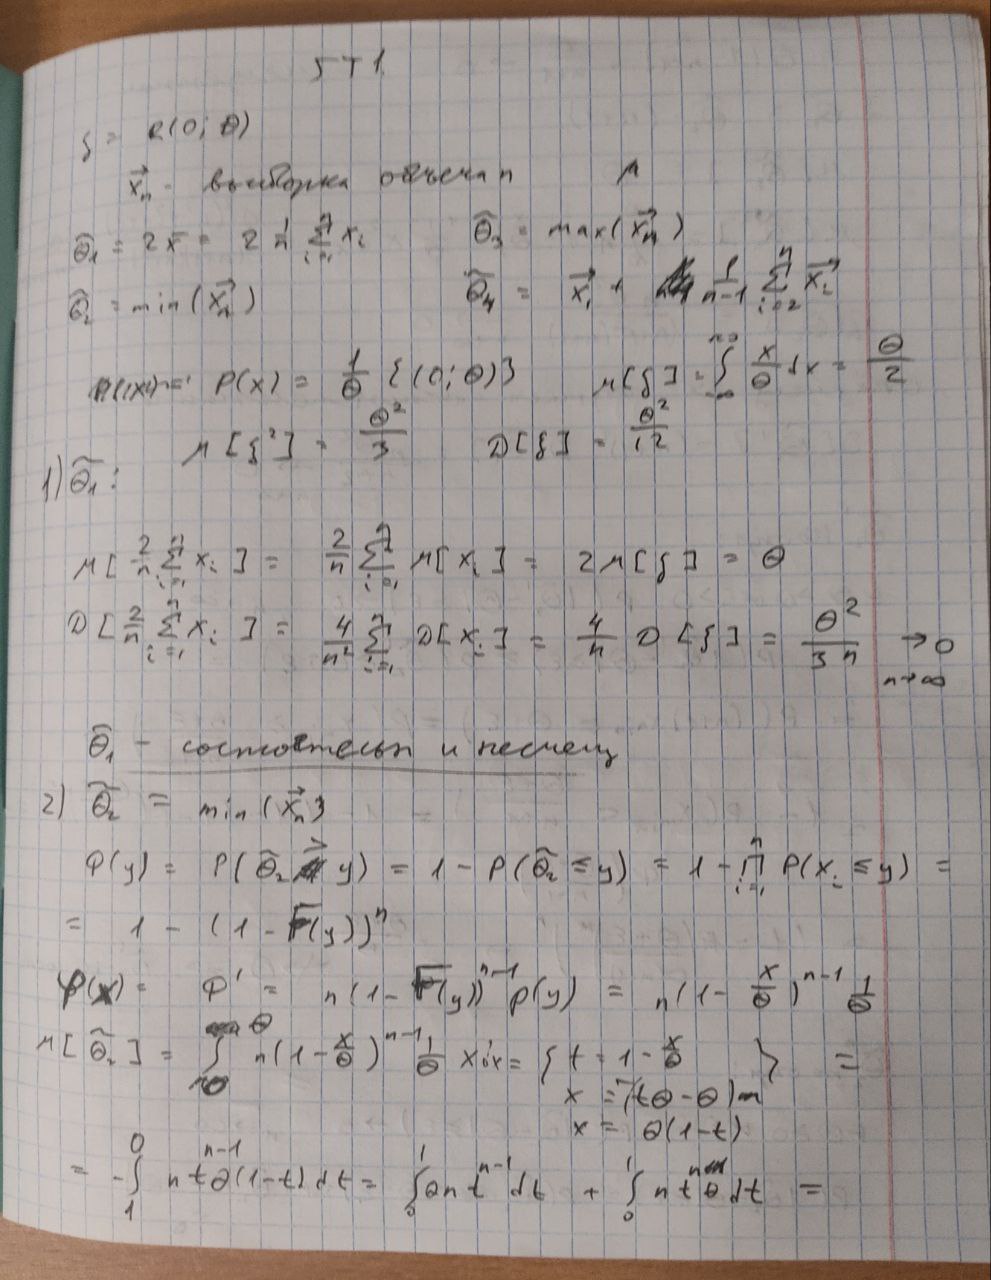 5T1
ξ = R(0; θ)
x⃗n - выборка объема n
θ̃1 = 2x̄ = 2 1/n Σ_{i=1}^{n} xi    θ̃3 = max(x⃗n)
θ̃2 = min(x⃗n)    θ̃4 = x⃗1 + 1/(n-1) Σ_{i=2}^{n} x⃗i
P(x) = 1/θ {(0; θ)}    M[ξ] = ∫ x/θ dx = θ/2
M[ξ²] = θ²/3    D[ξ] = θ²/12
1) θ̃1:
M[2/n Σ_{i=1}^{n} xi] = 2/n Σ_{i=1}^{n} M[xi] = 2M[ξ] = θ
D[2/n Σ_{i=1}^{n} xi] = 4/n² Σ_{i=1}^{n} D[xi] = 4/n D[ξ] = θ²/3n → 0 n→∞
θ̃1 - состоятельн и несмещ
2) θ̃2 = min(x⃗n)
Φ(y) = P(θ̃2 > y) = 1 - P(θ̃2 ≤ y) = 1 - Π_{i=1}^{n} P(xi ≤ y) =
= 1 - (1 - F(y))^n
φ(x) = Φ' = n(1 - F(y))^{n-1} p(y) = n(1 - x/θ)^{n-1} 1/θ
M[θ̃2] = ∫ n(1 - x/θ)^{n-1} 1/θ x dx = { t = 1 - x/θ } =
x = -(tθ - θ)
x = θ(1-t)
= -∫_1^0 n t^{n-1} θ(1-t) dt = ∫_0^1 θn t^{n-1} dt + ∫_0^1 n t θ dt =